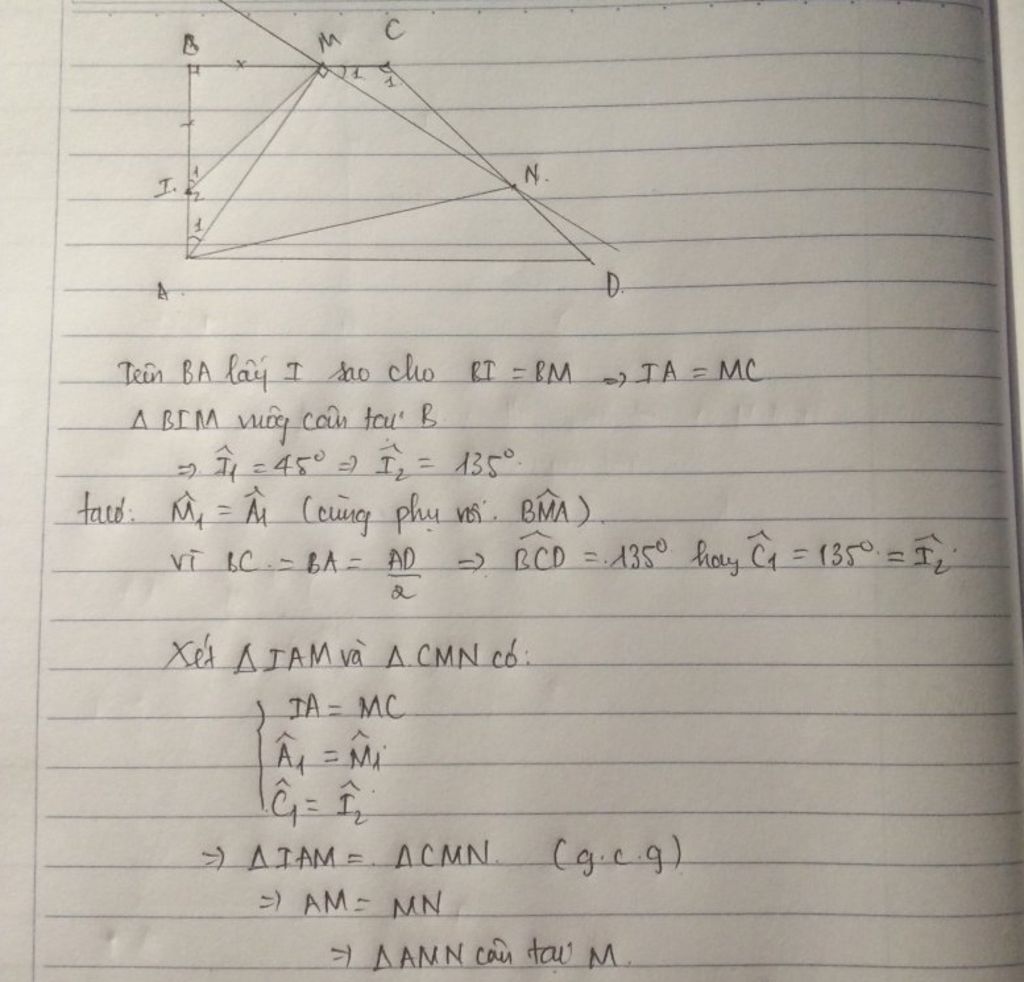 B M C
1 1
I 1 2 N.
1
A. D.
Trên BA lấy I sao cho BI = BM => IA = MC
Δ BIM vuông cân tại B.
=> Î₁ = 45° => Î₂ = 135°.
ta có: M̂₁ = Â₁ (cùng phụ với BM̂A).
vì BC = BA = AD/2 => BĈD = 135° hay Ĉ₁ = 135° = Î₂.
Xét Δ IAM và Δ CMN có:
{ IA = MC
Â₁ = M̂₁
Ĉ₁ = Î₂
=> Δ IAM = ΔCMN. (g.c.g)
=> AM = MN
=> ΔAMN cân tại M.